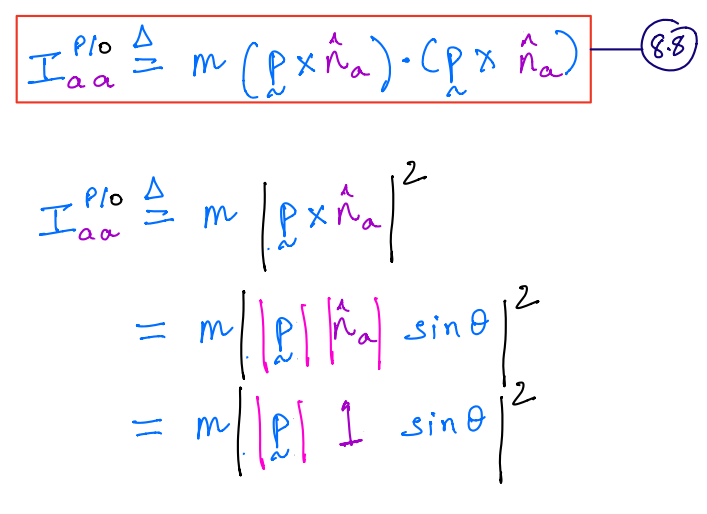 I_{aa}^{P/O} ≜ m (p̰ × n̂_a) · (p̰ × n̂_a) — 8.8
I_{aa}^{P/O} ≜ m |p̰ × n̂_a|²
= m ||p̰| |n̂_a| sin θ|²
= m ||p̰| 1 sin θ|²